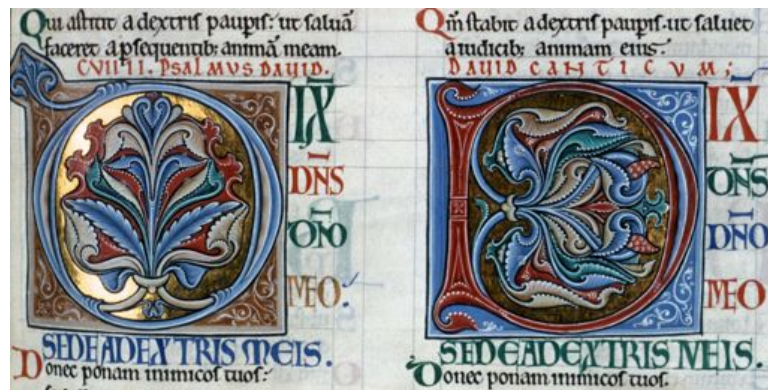 Qui astitit a dextris pauperis: ut saluā
faceret a psequentib; animā meam.
CVIIII. PSALMUS DAUID.
IX
DN̄S
DN̄O
MEO.
SEDE A DEXTRIS MEIS.
Donec ponam inimicos tuos:
Qm̄ stabit a dextris paupis. ut saluet
a iudicib; animam eius.
DAUID CANTICUM;
IX
DN̄S
DN̄O
MEO
SEDE A DEXTRIS MEIS.
Donec ponam inimicos tuos.